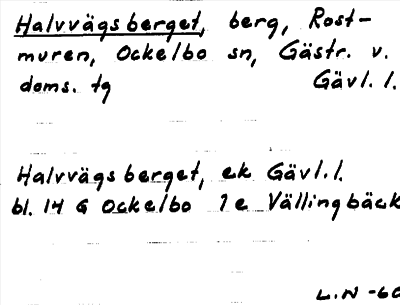 Halvvägsberget, berg, Rost-
muren, Ockelbo sn, Gästr. v.
doms. tg Gävl. l.
Halvvägsberget, ek Gävl. l.
bl. 14 G Ockelbo 1 e Vällingbäck
L.N -60